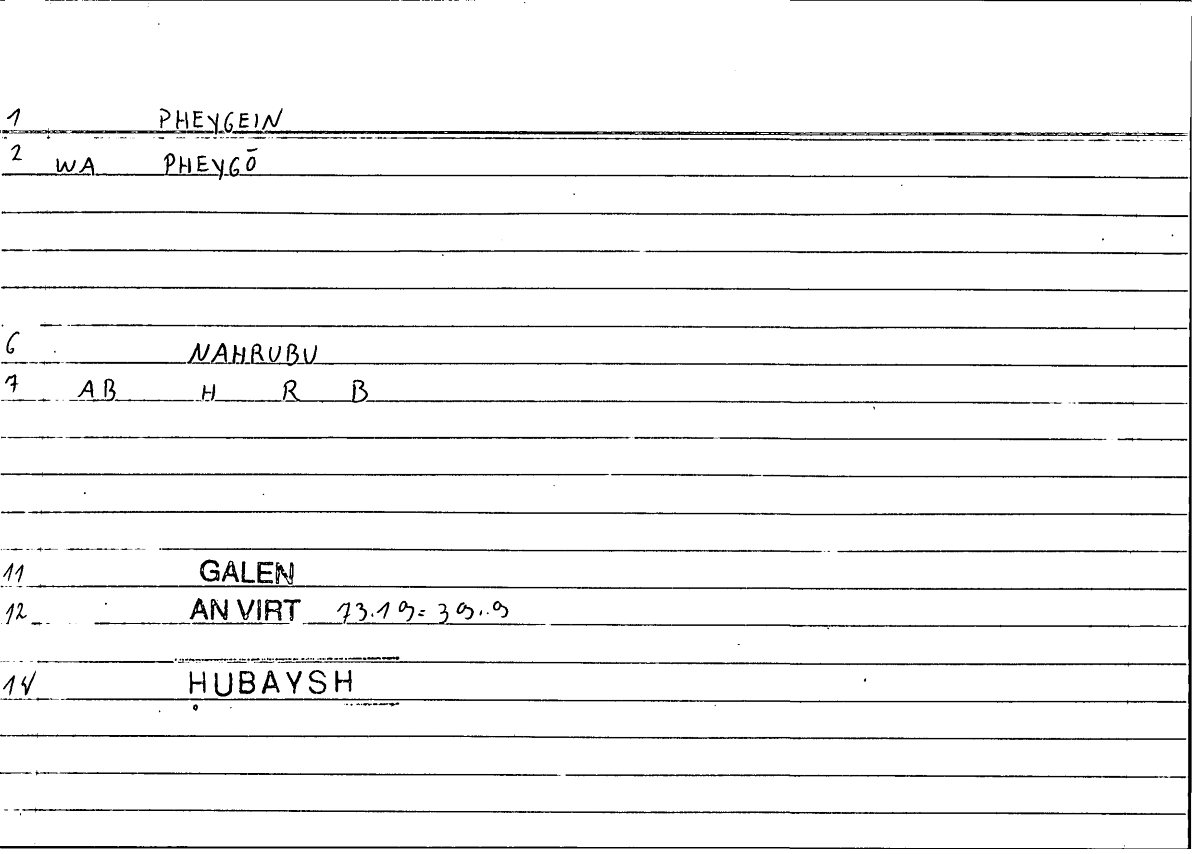 1 PHEYGEIN
2 WA PHEYGŌ
6 NAHRUBU
7 AB H R B
11 GALEN
12 AN VIRT 73.19= 39.9
14 ḤUBAYSH